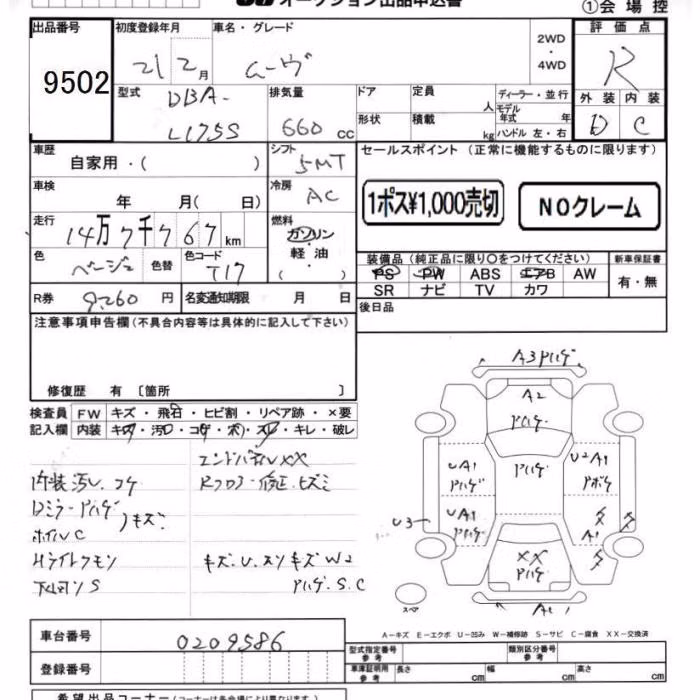 オークション出品申込書
①会場控
出品番号
9502
初度登録年月
21 2月
車名・グレード
ムーヴ
2WD
・
4WD
評価点
R
外装 内装
D C
型式
DBA-
L175S
排気量
660 cc
ドア
形状
定員
人
積載
kg
ディーラー・並行
モデル年式 年
ハンドル 左・右
車歴
自家用・( )
シフト
5MT
セールスポイント (正常に機能するものに限ります)
1ポス¥1,000売切
NOクレーム
車検
年 月( 日)
冷房
AC
走行
14万7千767km
燃料
ガソリン
軽油
( )
色
ベージュ
色替
色コード
T17
装備品(純正品に限り○をつけてください)
PS PW ABS エアB AW
SR ナビ TV カワ
新車保証書
有・無
R券 9,260円
名変通知期限 月 日
後日品
注意事項申告欄(不具合内容等は具体的に記入して下さい)
修復歴 有 〔箇所 〕
検査員
記入欄
FW キズ・飛石・ヒビ割・リペア跡・×要
内装 キズ・汚レ・コゲ・穴・スレ・キレ・破レ
エンドパネルXX
内装汚レ コゲ
Rフロアー修正.ヒズミ
Dミラー アハゲ
キズ
ホイルC
Hライトクモリ
キズ.U.スリキズW2
下回リS
アハゲ.S.C
A3アハゲ
A2
アハゲ
UA1
アハゲ
アハゲ
U2A1
アボケ
UA1
アハゲ
U3
A1
XX
アハゲ
スペア
A-キズ E-エクボ U-凹み W-補修跡 S-サビ C-腐食 XX-交換済
車台番号
0209586
登録番号
型式指定番号
参考
類別区分番号
参考
車庫証明用
参考
長さ cm 幅 cm 高さ cm
希望出品コーナー(コーナーは各会場により異なります)